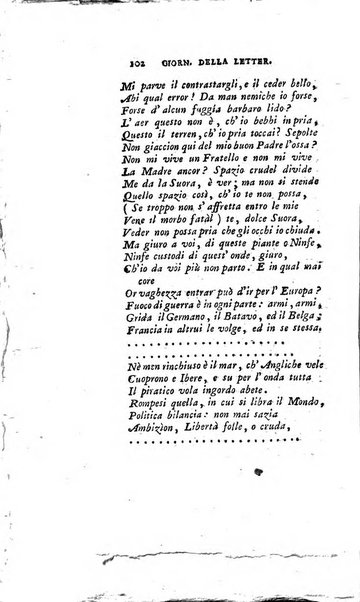 102 GIORN. DELLA LETTER.
Mi parve il contrastargli, e il ceder bello,
Ahi qual error! Da man nemiche io forse,
Forse d' alcun fuggia barbaro lido?
L' aer questo non è, ch' io bebbi in pria,
Questo il terren, ch' io pria toccai? Sepolte
Non giaccion qui del mio buon Padre l'ossa?
Non mi vive un Fratello e non mi vive
La Madre ancor? Spazio crudel divide
Me da la Suora, è ver; ma non si stende
Quello spazio così, ch' io te non possa,
( Se troppo non s' affretta entro le mie
Vene il morbo fatàl ) te, dolce Suora,
Veder non possa pria che gli occhi io chiuda.
Ma giuro a voi, di queste piante o Ninfe,
Ninfe custodi di quest' onde, giuro,
Ch'io da voi più non parto. E in qual mai
core
Or vaghezza entrar può d' ir per l' Europa?
Fuoco di guerra è in ogni parte: armi, armi,
Grida il Germano, il Batavo, ed il Belga;
Francia in altrui le volge, ed in se stessa.
. . . . . . . . . . . . . . . . . . . . .
. . . . . . . . . . . . . . . . . . . . .
Nè men rinchiuso è il mar, ch' Angliche vele
Cuoprono e Ibere, e su per l' onda tutta
Il piratico vola ingordo abete.
Rompesi quella, in cui si libra il Mondo,
Politica bilancia: non mai sazia
Ambizìon, Libertà folle, o cruda,
. . . . . . . . . . . . . . . . . . . . .